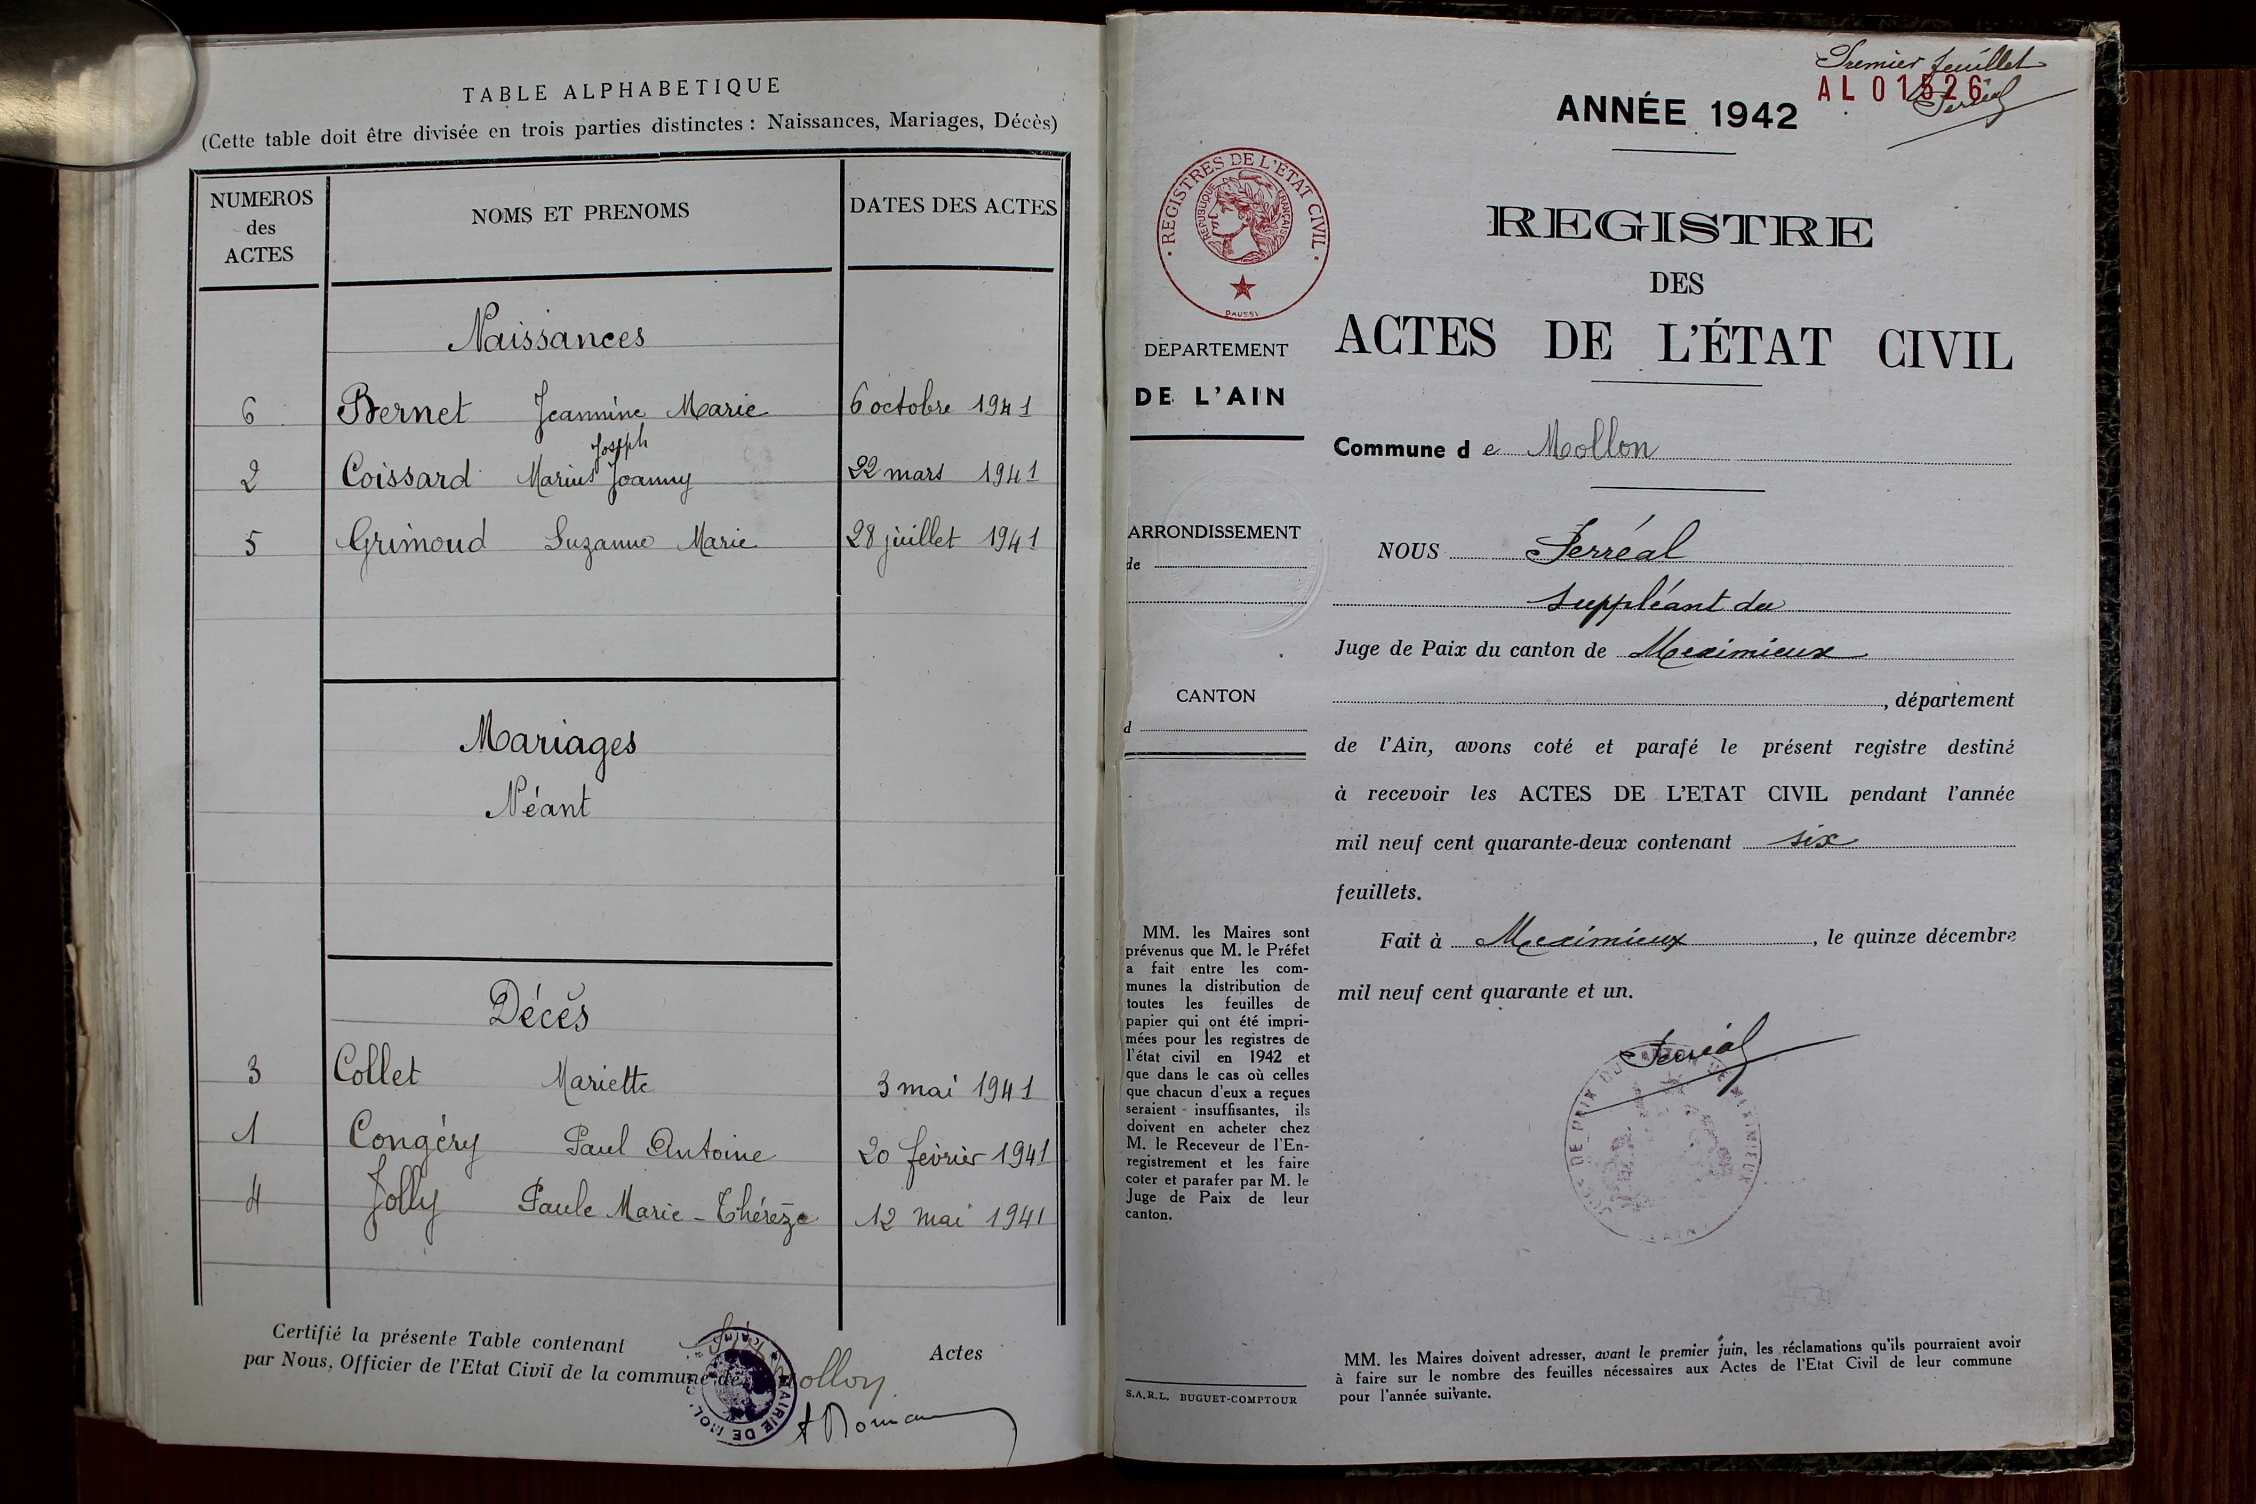 TABLE ALPHABETIQUE
(Cette table doit être divisée en trois parties distinctes : Naissances, Mariages, Décès)
NUMEROS des ACTES
NOMS ET PRENOMS
DATES DES ACTES
Naissances
6 Bernet Jeannine Marie 6 octobre 1941
Joseph
2 Coissard Marius Joanny 22 mars 1941
5 Grimoud Suzanne Marie 28 juillet 1941
Mariages
Néant
Décès
3 Collet Mariette 3 mai 1941
1 Congéry Paul Antoine 20 février 1941
4 Jolly Paule Marie-Thérèze 12 mai 1941
Certifié la présente Table contenant Actes
par Nous, Officier de l'Etat Civil de la commune de Mollon
MAIRIE DE MOL
Premier feuillet
AL 01526
Ferréal
ANNÉE 1942
REGISTRES DE L'ÉTAT CIVIL
RÉPUBLIQUE FRANÇAISE
DAUSSY
REGISTRE
DES
ACTES DE L'ÉTAT CIVIL
DEPARTEMENT
DE L'AIN
Commune d e Mollon
ARRONDISSEMENT
de
CANTON
d
NOUS Ferréal
suppléant du
Juge de Paix du canton de Meximieux
, département
de l'Ain, avons coté et parafé le présent registre destiné
à recevoir les ACTES DE L'ETAT CIVIL pendant l'année
mil neuf cent quarante-deux contenant six
feuillets.
Fait à Meximieux, le quinze décembre
mil neuf cent quarante et un.
Ferréal
MM. les Maires sont
prévenus que M. le Préfet
a fait entre les com-
munes la distribution de
toutes les feuilles de
papier qui ont été impri-
mées pour les registres de
l'état civil en 1942 et
que dans le cas où celles
que chacun d'eux a reçues
seraient insuffisantes, ils
doivent en acheter chez
M. le Receveur de l'En-
registrement et les faire
coter et parafer par M. le
Juge de Paix de leur
canton.
S.A.R.L. BUGUET-COMPTOUR
MM. les Maires doivent adresser, avant le premier juin, les réclamations qu'ils pourraient avoir
à faire sur le nombre des feuilles nécessaires aux Actes de l'Etat Civil de leur commune
pour l'année suivante.